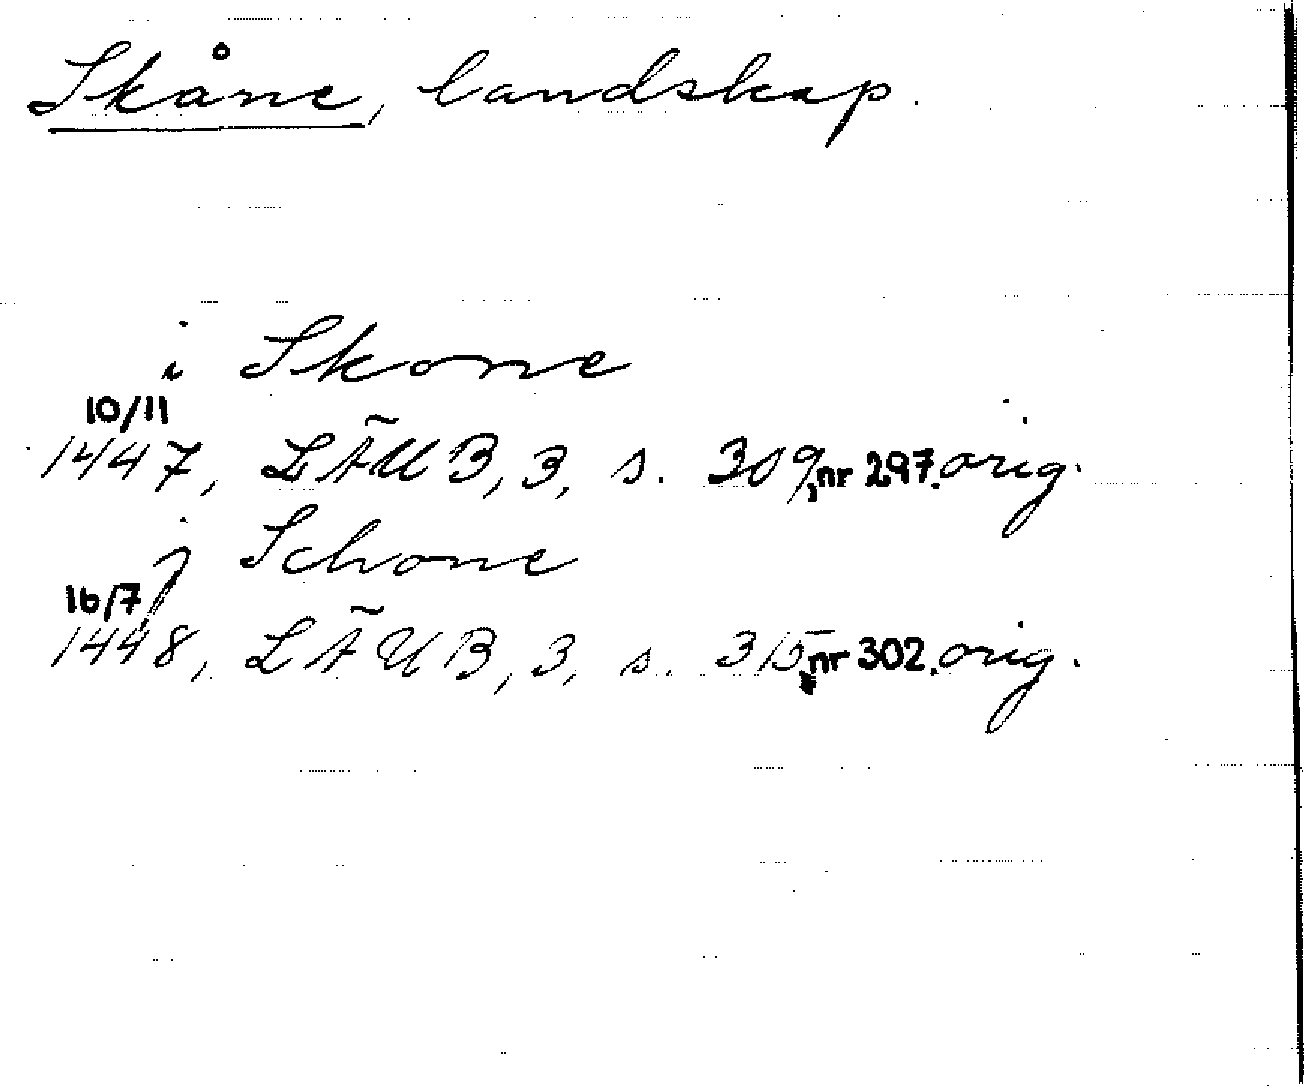 Skåne, landskap.
i Skone
10/11
1447, LÄUB, 3, s. 309, nr 297. orig.
j Schone
16/7
1448, LÄUB, 3, s. 315, nr 302. orig.